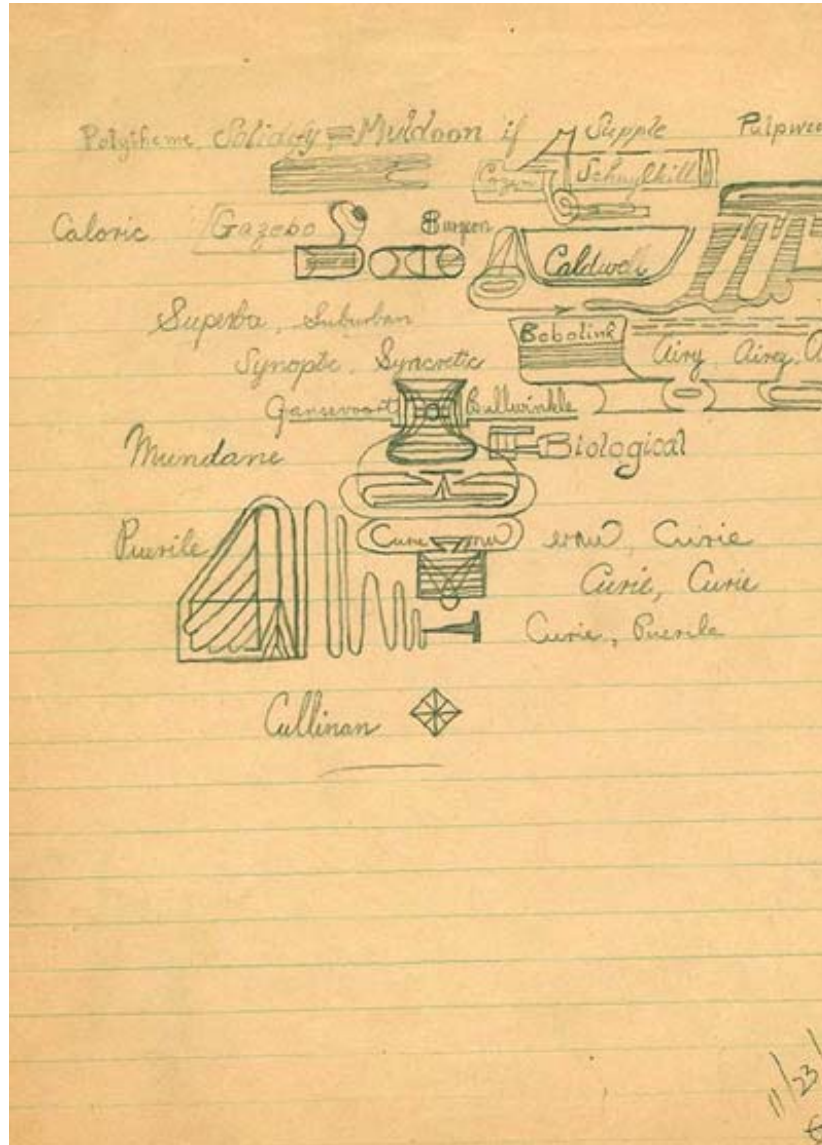 Polytheme, Solidify, Muldoon if Supple Pulpwoo
Schuylkill
Caloric Gazebo Burgeon
Caldwell
Superba, Suburban
Bobolink Airy, Airey, A
Synoptic, Syncretic
Gansevoort Bullwinkle
Mundane Biological
Puerile Curie Curie
Curie, Curie
Curie, Puerile
Cullinan
11/23/